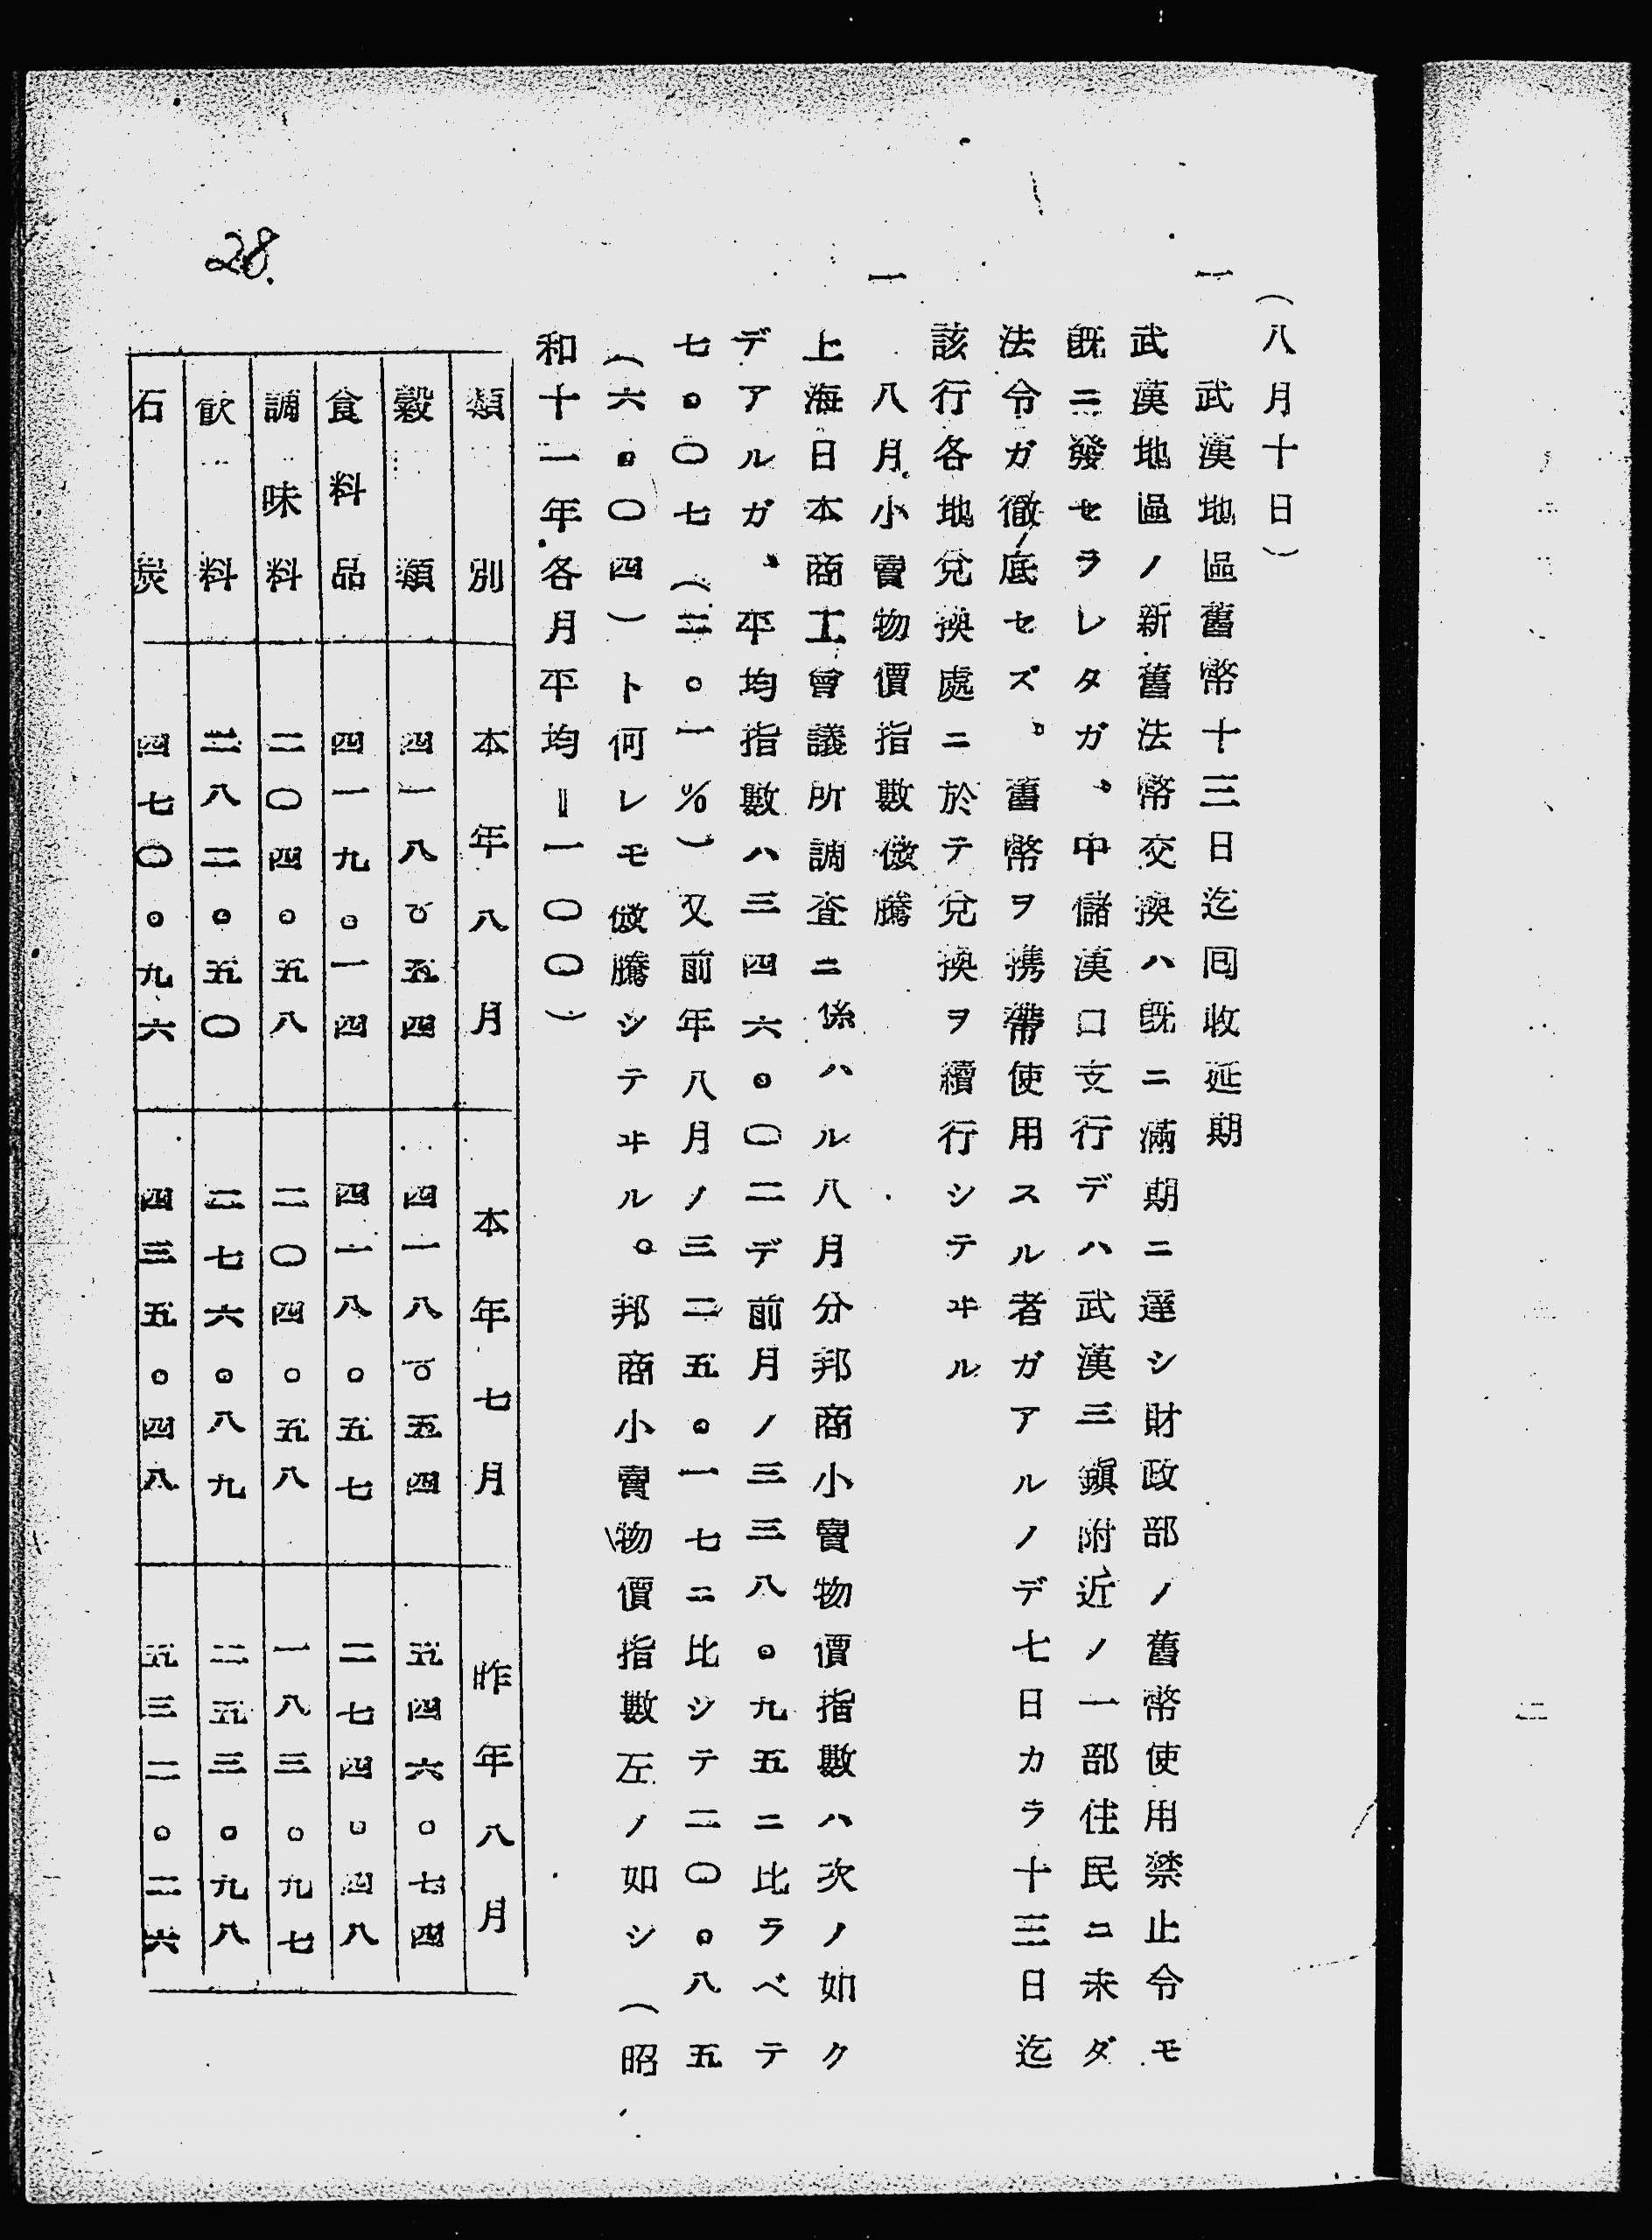 (八月十日)
一 武漢地區舊幣十三日迄囘收延期
武漢地區ノ新舊法幣交換ハ既ニ滿期ニ達シ財政部ノ舊幣使用禁止令モ
既ニ發セラレタガ、中儲漢口支行デハ武漢三鎭附近ノ一部住民ニ未ダ
法令ガ徹底セズ、舊幣ヲ携帶使用スル者ガアルノデ七日カラ十三日迄
該行各地兌換處ニ於テ兌換ヲ續行シテヰル
一 八月小賣物價指數微騰
上海日本商工會議所調査ニ係ハル八月分邦商小賣物價指數ハ次ノ如ク
デアルガ、平均指數ハ三四六。〇二デ前月ノ三三八。九五ニ比ラベテ
七。〇七(二。一%)又前年八月ノ三二五。一七ニ比シテ二〇。八五
(六。〇四)ト何レモ微騰シテヰル。邦商小賣物價指數左ノ如シ(昭
和十一年各月平均=一〇〇)
類別 本年八月 本年七月 昨年八月
穀類 四一八。五四 四一八。五四 五四六。七四
食料品 四一九。一四 四一八。五七 二七四。四八
調味料 二〇四。五八 二〇四。五八 一八三。九七
飲料 二八二。五〇 二七六。八九 二五三。九八
石炭 四七〇。九六 四三五。四八 五三二。二六
28.